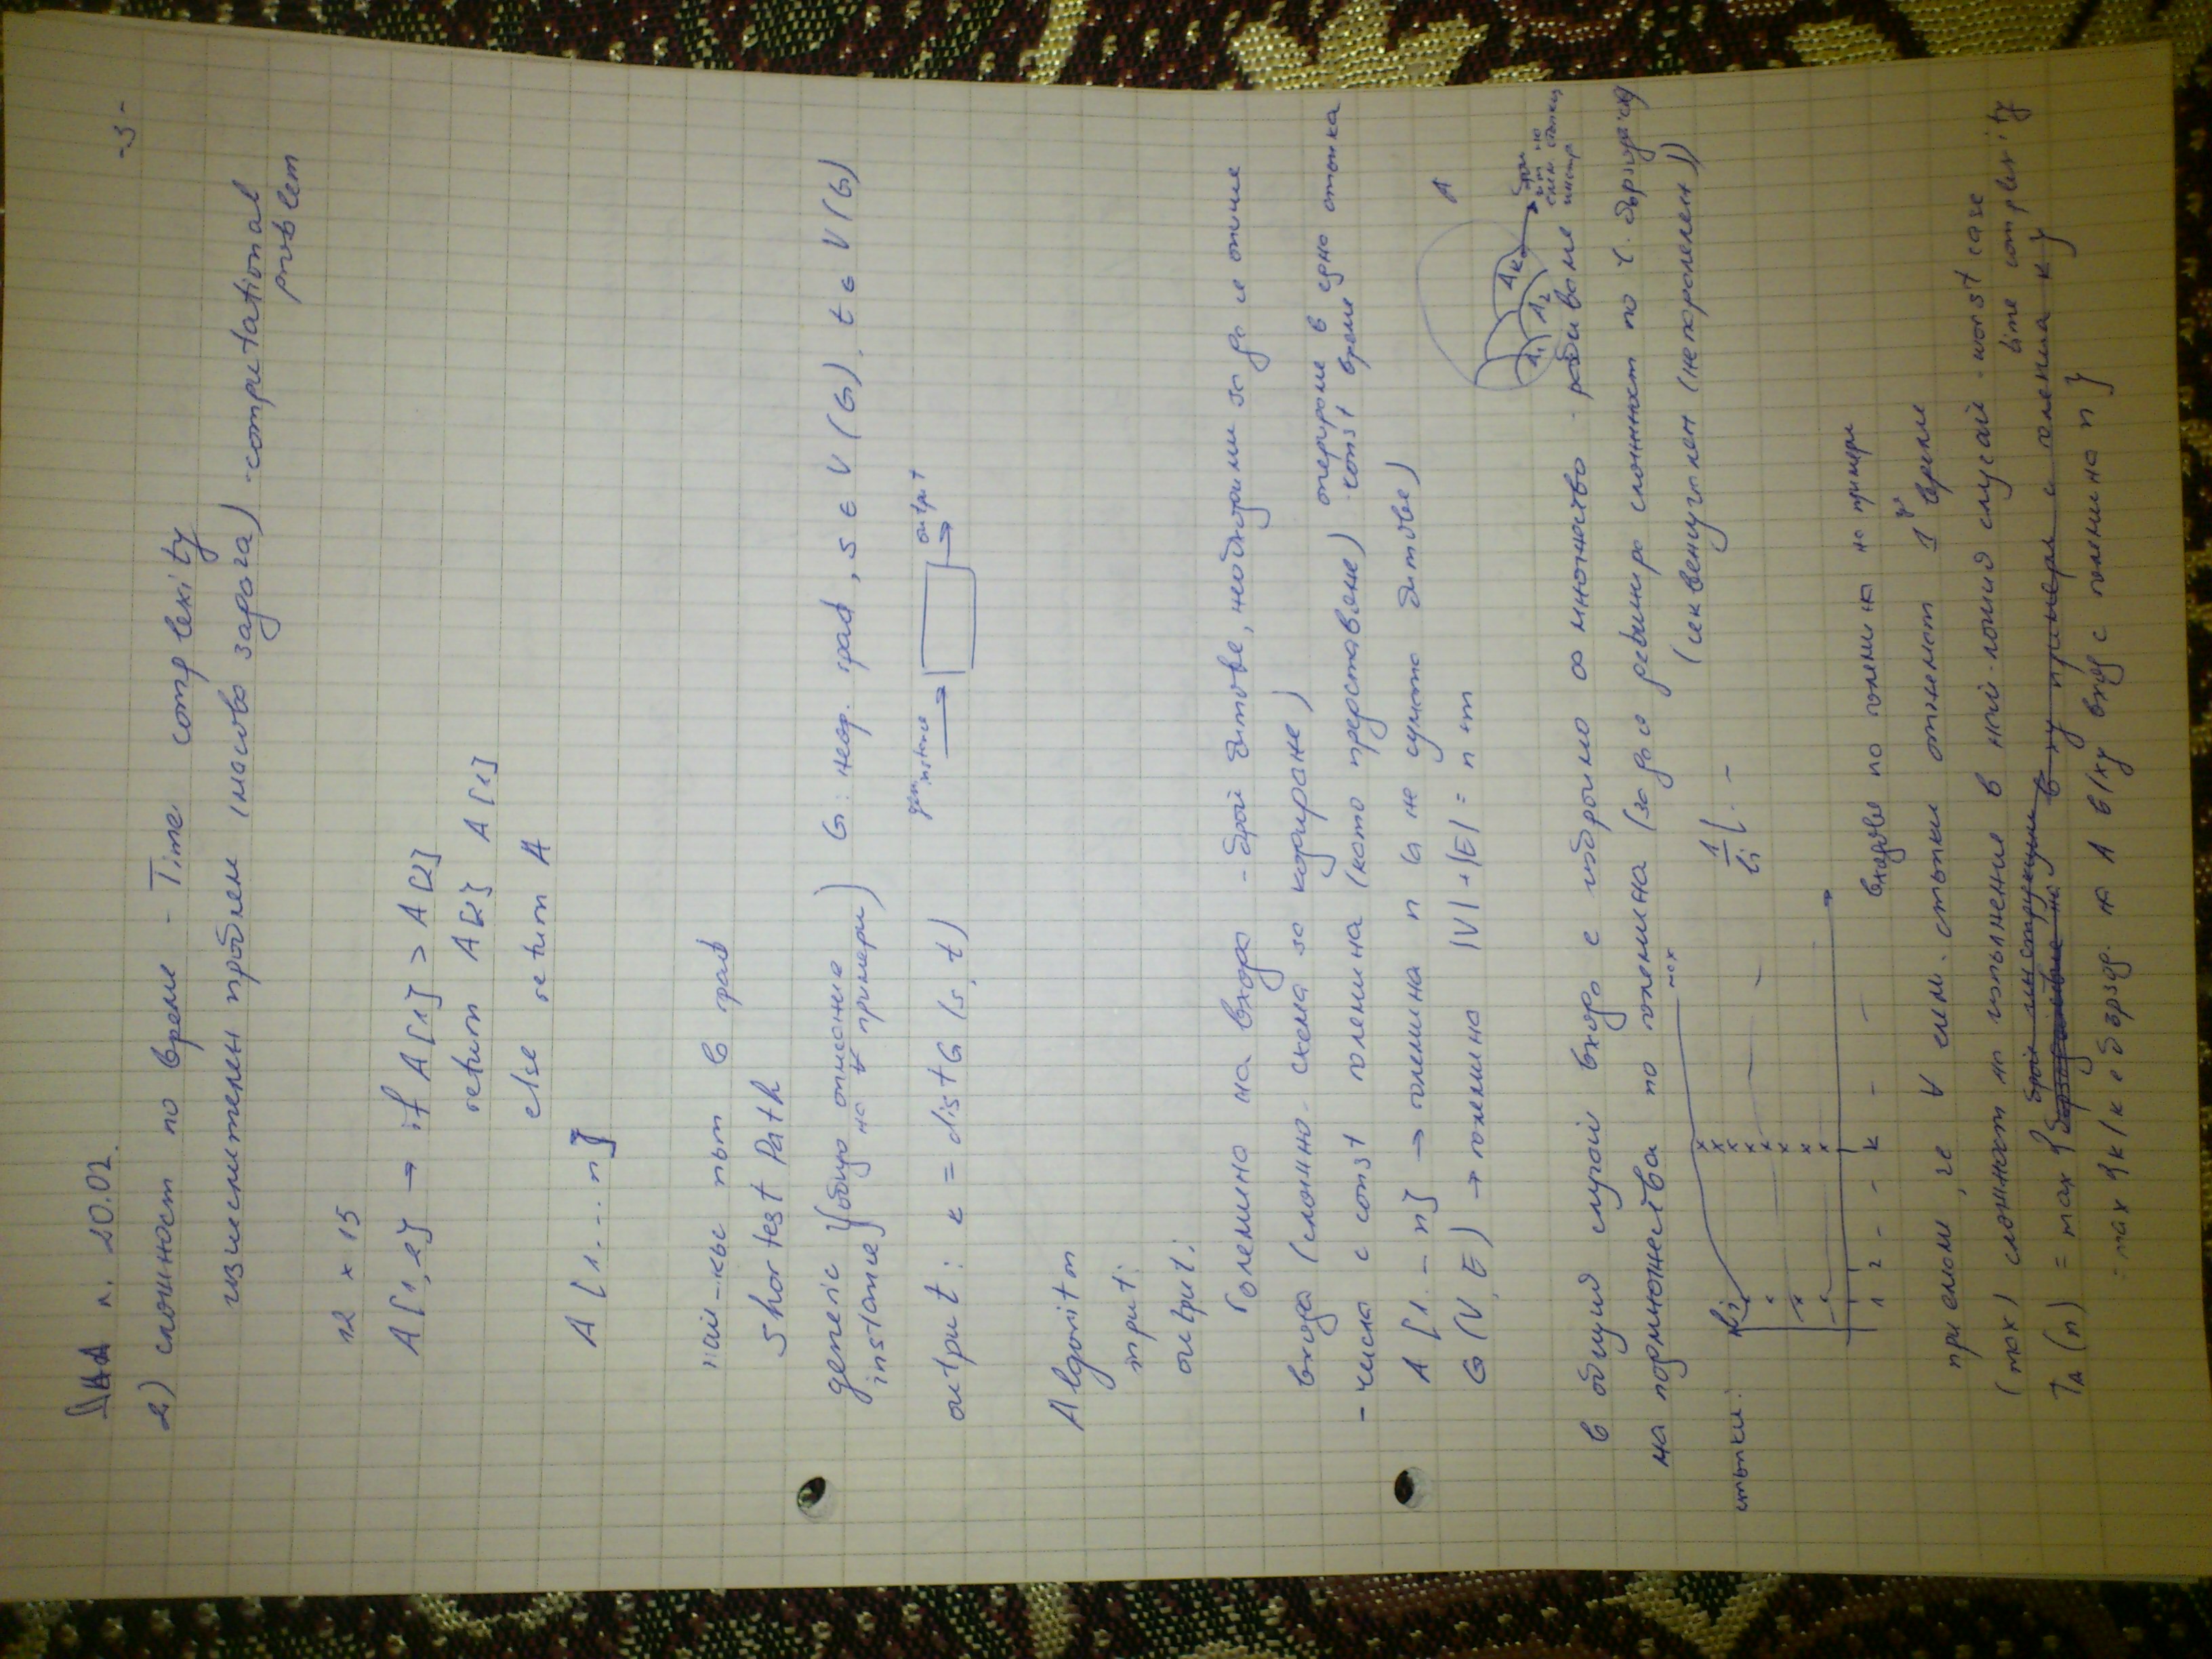 ДАА л. 20.02. -3-
2) сложност по време - Time complexity
изчислителен проблем (масова задача) - computational problem
12 x 15
A[1,2] → if A[1] > A[2]
return A[2] A[1]
else return A
A[1...n]
най-къс път в граф
Shortest Path
generic instance (общо описание на ∀ примери) G: неор. граф, s ∈ V(G), t ∈ V(G)
output: k = distG(s,t)
ген. instance → output →
Algoritm
input:
output:
Големина на входа - брой битове, необходими за да се опише
входа (сложна схема за кодиране)
- числа с const големина (като представяне) опериране в една стъпка const време
A[1..n] → големина n (а не сумата битове)
G(V,E) → големина |V|+|E| = n+m
A
A1 A2 Ak
в общия случай входа е избройно ∞ множество - разбиване
на подмножества по големина (за да се дефинира сложност по
(секвенциален (непаралелен))
стъпки:
max
1 2 - - k - - -
входове по големина на примери
приемаме, че ∀ елем. стъпки отнемат 1 време
(max) сложност на изпълнение в най-лошия случай - worst case time complexity
T_A(n) = max {
= max {k | k е на A в/ху вход с големина n}